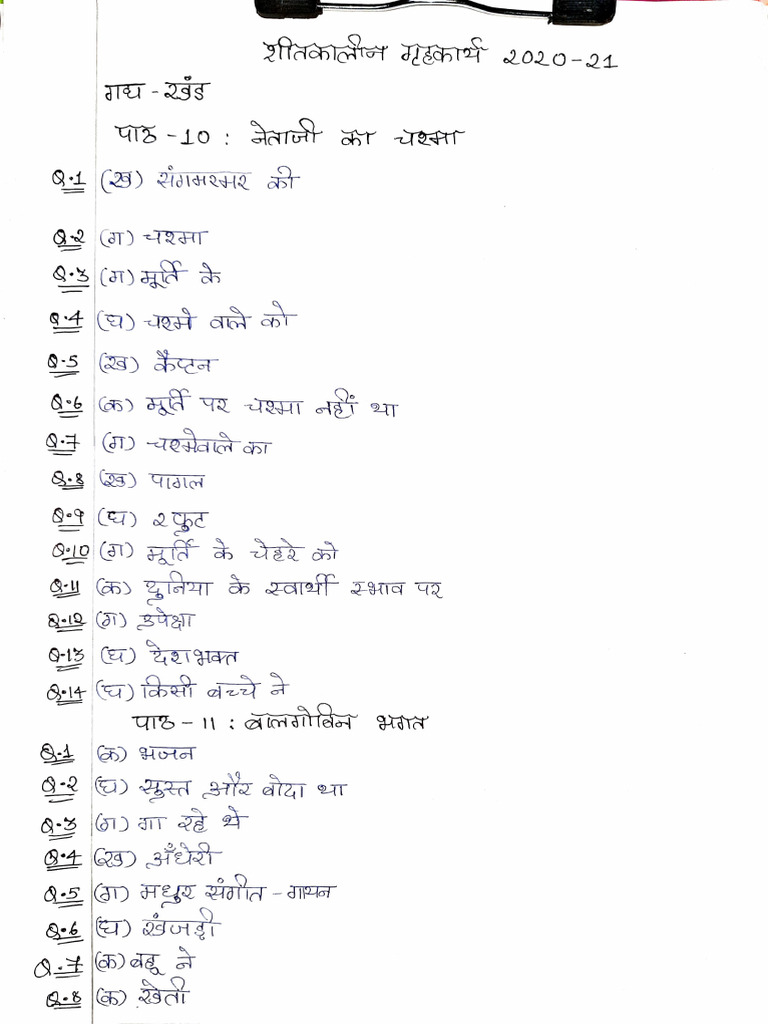 शीतकालीन गृहकार्य 2020-21
गद्य - खंड
पाठ -10 : नेताजी का चश्मा
Q.1 (ख) संगमरमर की
Q.2 (ग) चश्मा
Q.3 (ग) मूर्ति के
Q.4 (घ) चश्मे वाले को
Q.5 (ख) कैप्टन
Q.6 (क) मूर्ति पर चश्मा नहीं था
Q.7 (ग) चश्मेवाले का
Q.8 (ख) पागल
Q.9 (घ) २ फुट
Q.10 (ग) मूर्ति के चेहरे को
Q.11 (क) दुनिया के स्वार्थी स्भाव पर
Q.12 (ग) उपेक्षा
Q.13 (घ) देशभक्त
Q.14 (घ) किसी बच्चे ने
पाठ - 11 : बालगोबिन भगत
Q.1 (क) भजन
Q.2 (घ) सुस्त और बोदा था
Q.3 (ग) गा रहे थे
Q.4 (ख) अँधेरी
Q.5 (ग) मधुर संगीत - गायन
Q.6 (घ) खंजड़ी
Q.7 (क) बहू ने
Q.8 (क) खेती